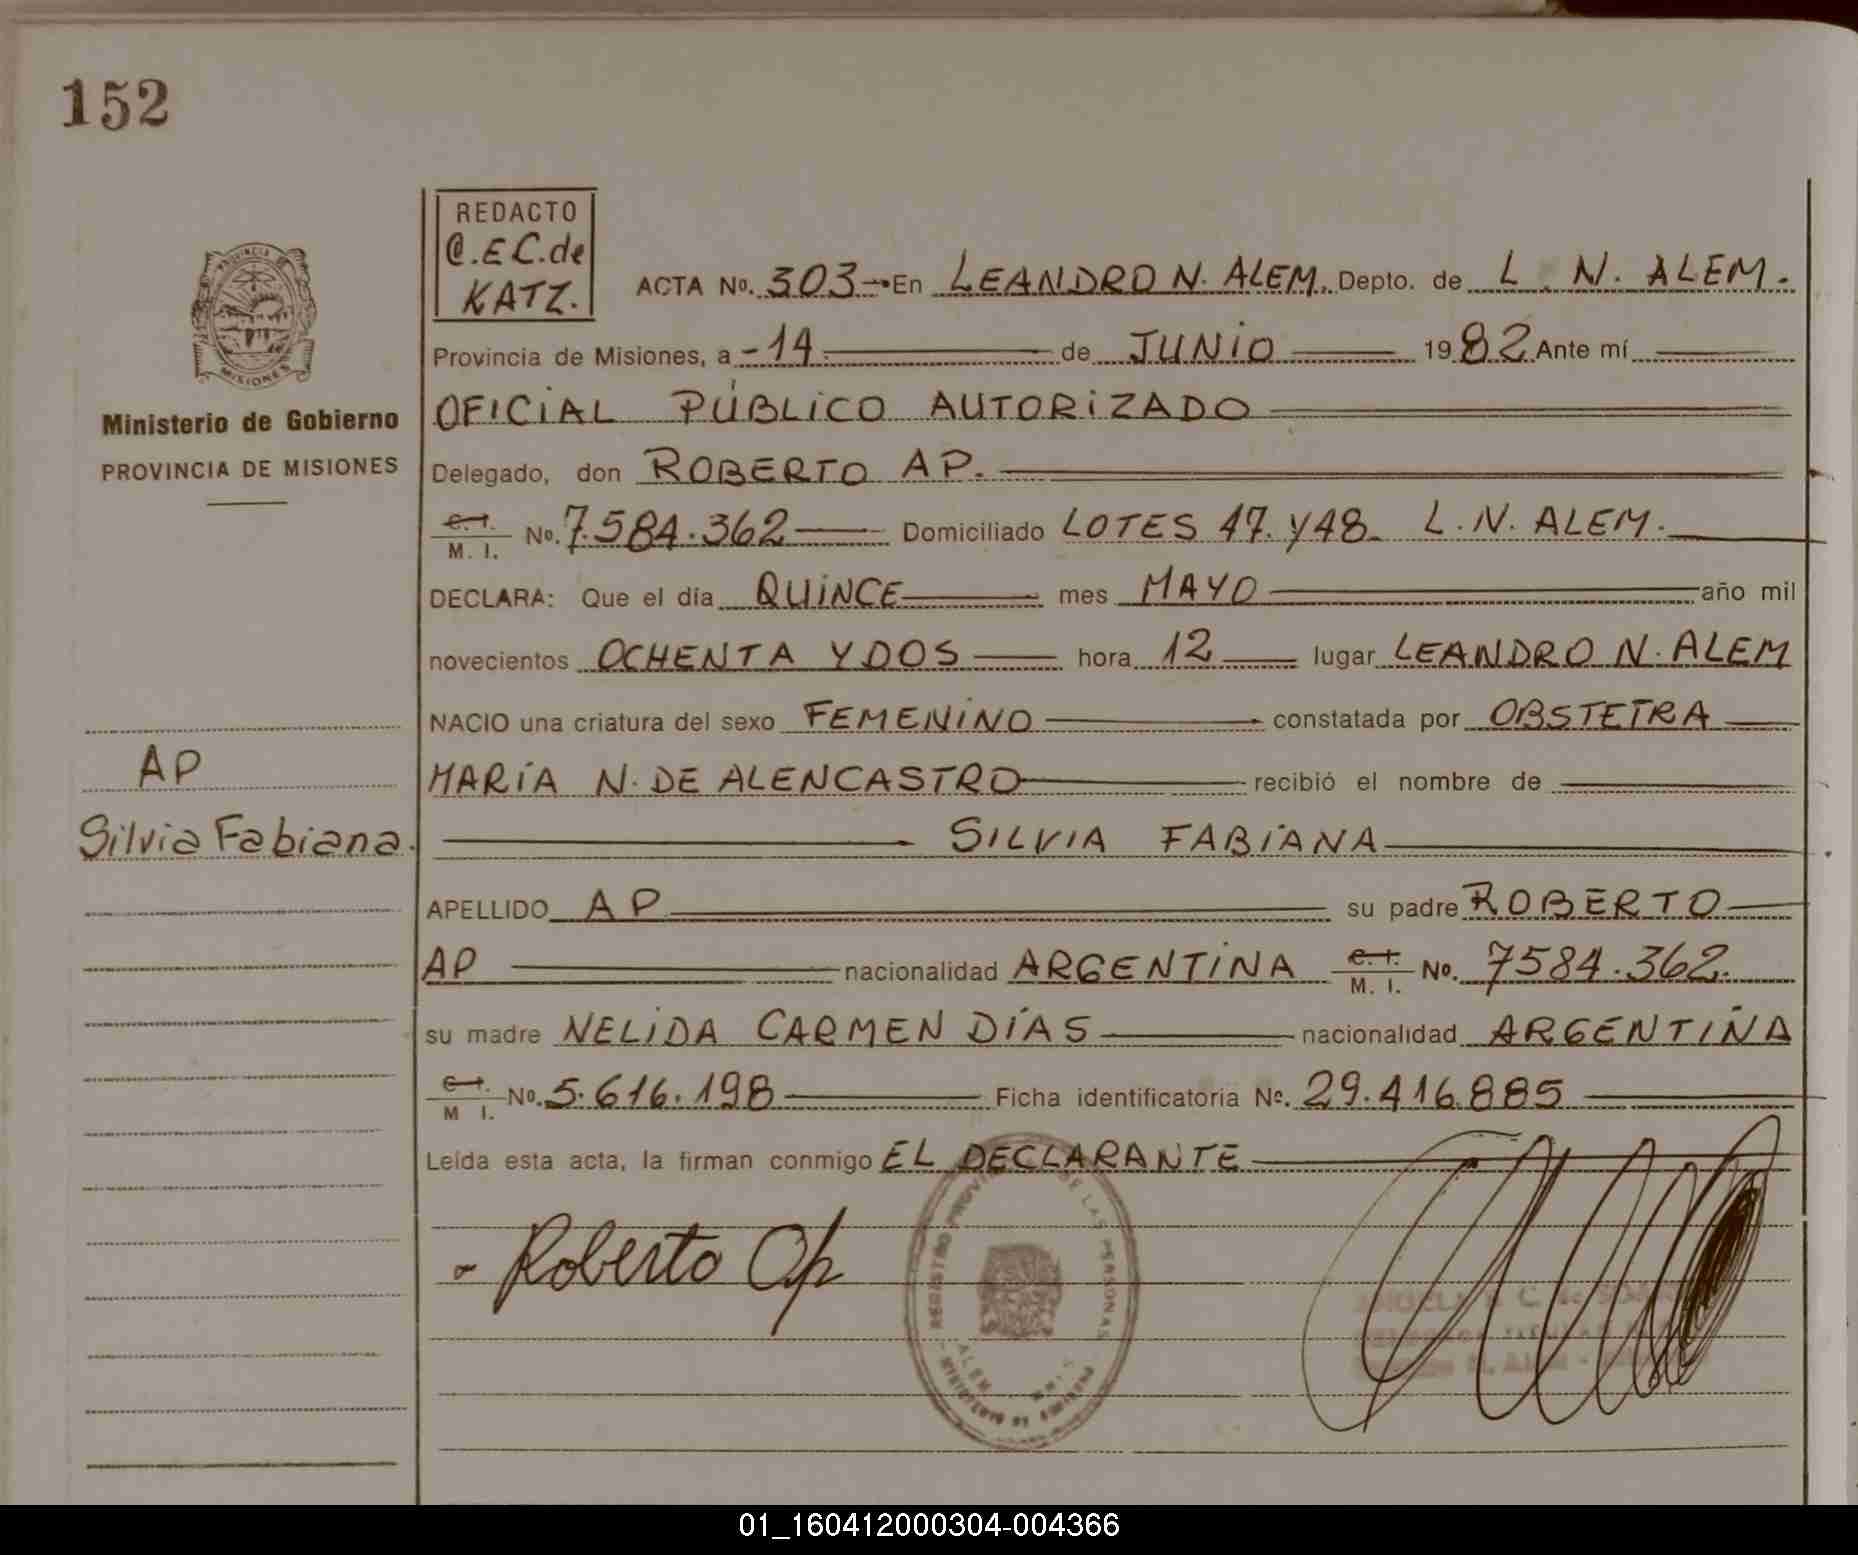 152
REDACTO
C.E.C.de
KATZ.
PROVINCIA DE
MISIONES
Ministerio de Gobierno
PROVINCIA DE MISIONES
ACTA No. 303 En LEANDRO N. ALEM. Depto. de L. N. ALEM.
Provincia de Misiones, a -14 de JUNIO 1982 Ante mí
OFICIAL PÚBLICO AUTORIZADO
Delegado, don ROBERTO AP.
C.I. M. I. No. 7.584.362 Domiciliado LOTES 47. y 48. L. N. ALEM.
DECLARA: Que el día QUINCE mes MAYO año mil
novecientos OCHENTA Y DOS hora 12 lugar LEANDRO N. ALEM
NACIO una criatura del sexo FEMENINO constatada por OBSTETRA
MARÍA N. DE ALENCASTRO recibió el nombre de
SILVIA FABIANA
AP
Silvia Fabiana.
APELLIDO AP su padre ROBERTO
AP nacionalidad ARGENTINA C.I. M. I. No. 7584.362.
su madre NELIDA CARMEN DÍAS nacionalidad ARGENTINA
C.I. M I. No. 5.616.198 Ficha identificatoria No. 29.416.885
Leída esta acta, la firman conmigo EL DECLARANTE
Roberto Ap
REGISTRO PROVINCIAL DE LAS PERSONAS
ALEM
MINISTERIO DE GOBIERNO
01_160412000304-004366